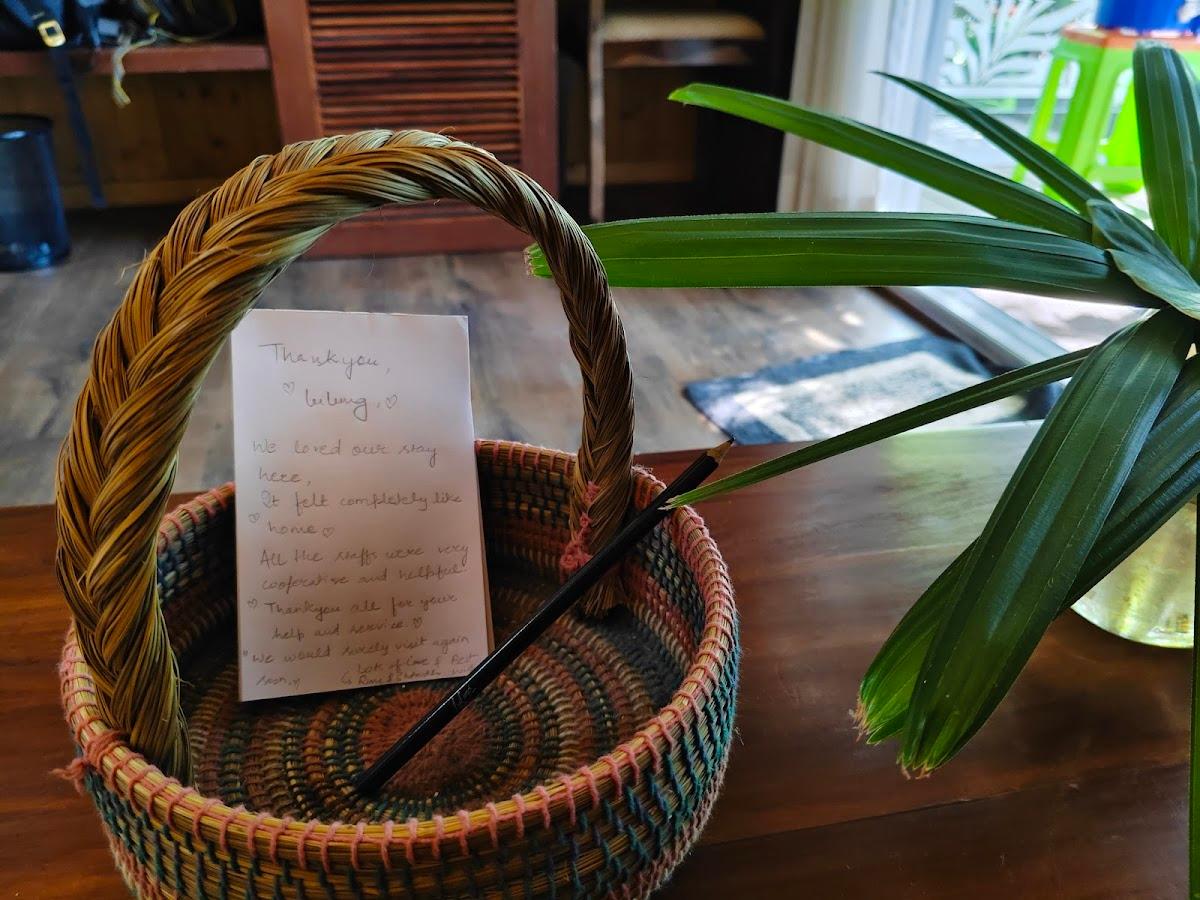 Thankyou,
♡ ♡
We loved our stay
here,
It felt completely like
♡ home ♡
All the staffs were very
cooperative and helpful
♡ Thankyou all for your
help and service. ♡
"We would surely visit again
soon. Lots of love &